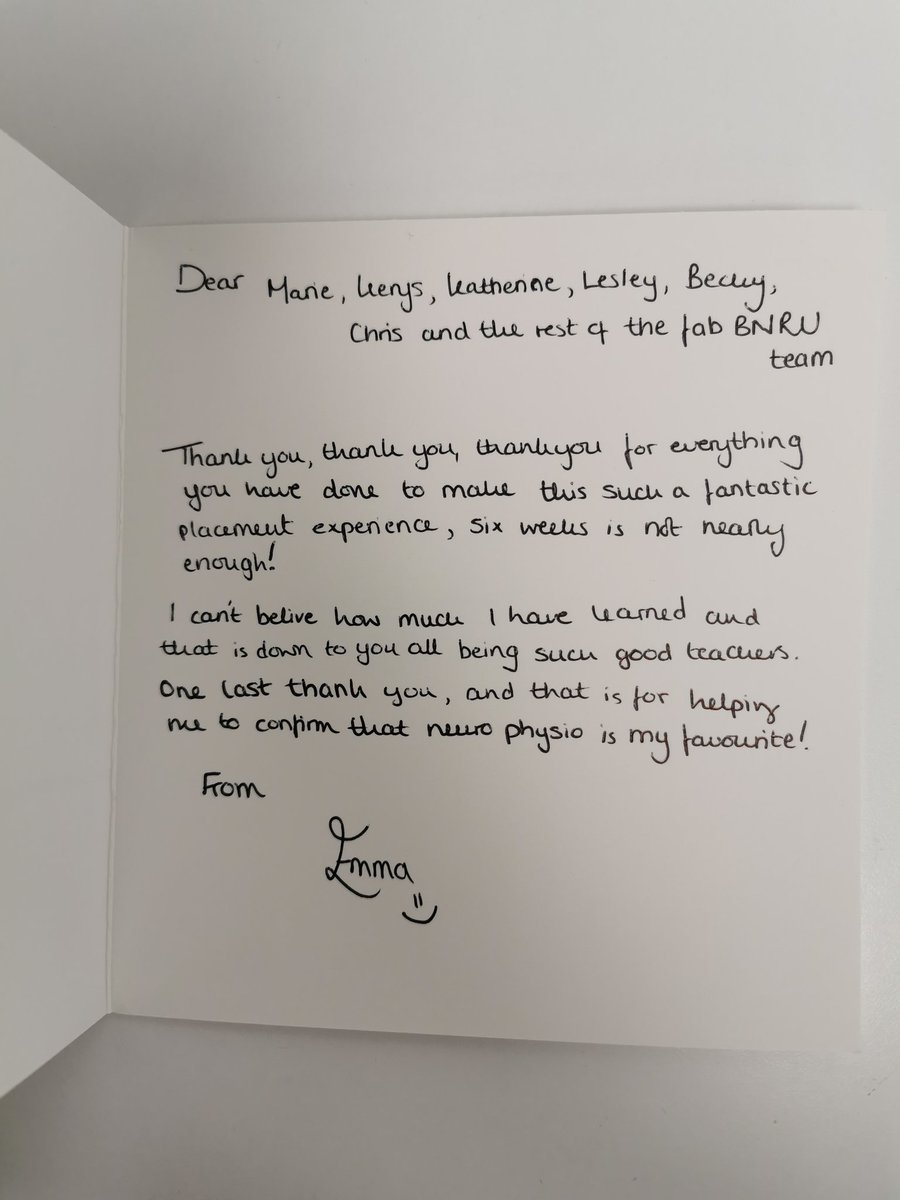 Dear Marie, Kerys, Katherine, Lesley, Becky,
Chris and the rest of the fab BNRU
team
Thank you, thank you, thankyou for everything
you have done to make this such a fantastic
placement experience, six weeks is not nearly
enough!
I can't belive how much I have learned and
that is down to you all being such good teachers.
One last thank you, and that is for helping
me to confirm that neuro physio is my favourite!
From
Emma